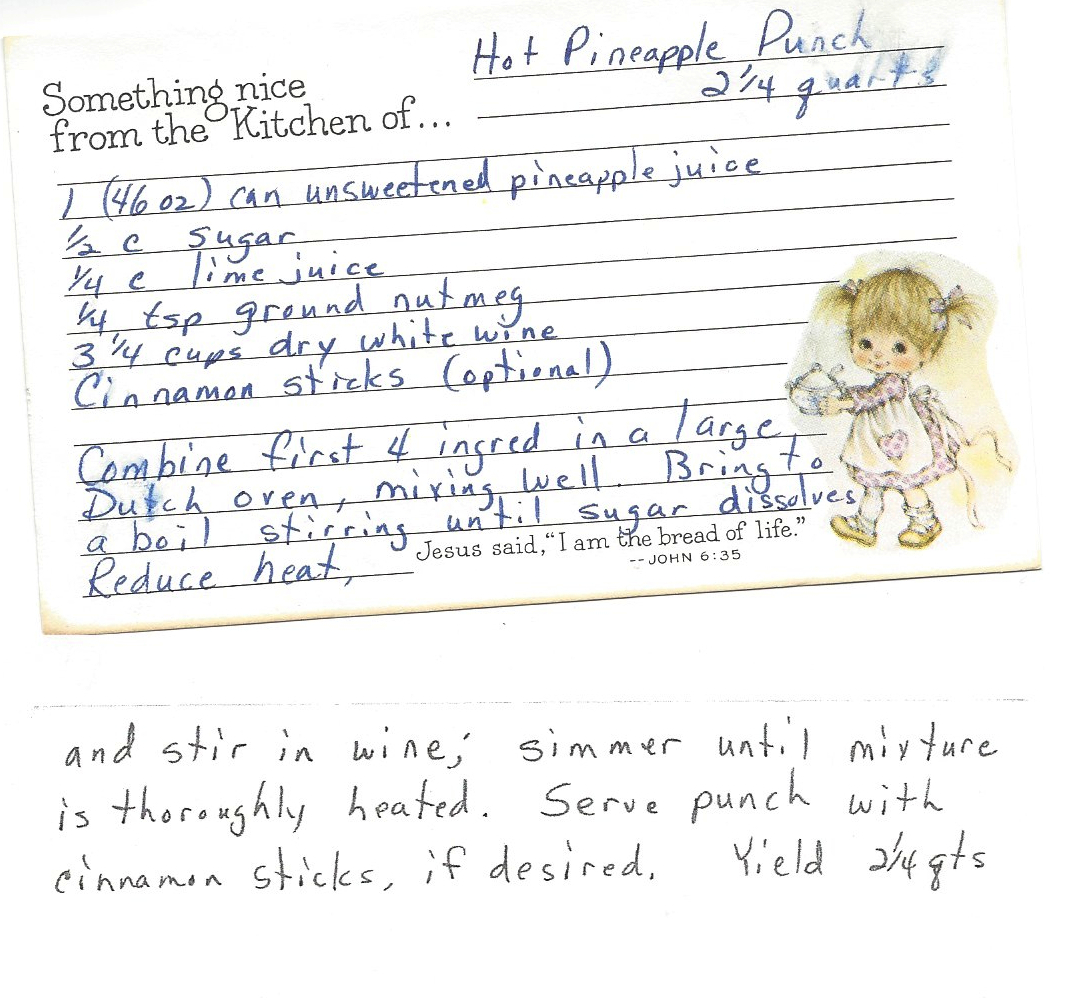 Hot Pineapple Punch
2 1/4 quarts
Something nice
from the Kitchen of...
1 (46 oz) can unsweetened pineapple juice
1/2 c sugar
1/4 c lime juice
1/4 tsp ground nutmeg
3 1/4 cups dry white wine
Cinnamon sticks (optional)
Combine first 4 ingred in a large
Dutch oven, mixing well. Bring to
a boil stirring until sugar dissolves
Jesus said, "I am the bread of life."
--JOHN 6:35
Reduce heat,
and stir in wine; simmer until mixture
is thoroughly heated. Serve punch with
cinnamon sticks, if desired. Yield 2 1/4 qts